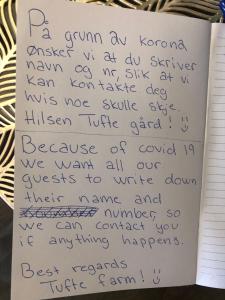 På grunn av korona
ønsker vi at du skriver
navn og nr, slik at vi
kan kontakte deg
hvis noe skulle skje.
Hilsen Tufte gård! :)
Because of covid 19
we want all our
guests to write down
their name and
number, so
we can contact you
if anything happens.
Best regards
Tufte farm! :)